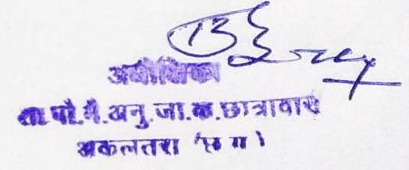 अधीक्षिका
शा.पो.मै.अनु.जा.क.छात्रावास
अकलतरा (छ ग)